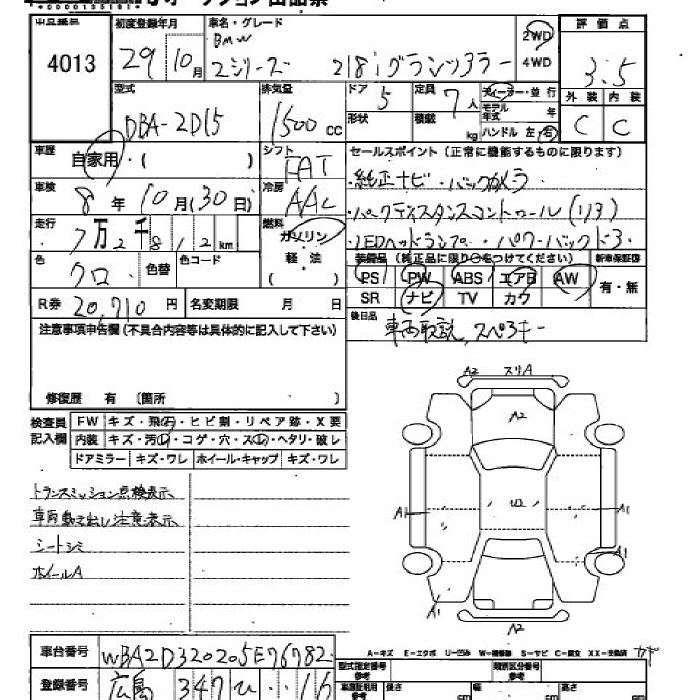 4013
初度登録年月
29年10月
車名・グレード
BMW
2シリーズ 218iグランツアラー
2WD
4WD
評価点
3.5
外装 内装
C C
型式
DBA-2D15
排気量
1500 cc
ドア 5
形状
定員 7人
積載 kg
ディーラー・並行
モデル年式 年
ハンドル 左・右
車歴
自家用・( )
シフト
FAT
セールスポイント(正常に機能するものに限ります)
・純正ナビ・バックカメラ
・パークディスタンスコントロール(リア)
・LEDヘッドランプ・パワーバックドア
車検
8年10月(30日)
冷房
AAC
走行
7万2千812km
燃料
ガソリン
軽・油
( )
色
クロ
色替
色コード
装備品(純正品に限り○をつけてください)
新車保証書
PS PW ABS エアB AW
SR ナビ TV カワ
有・無
R券 20,710円
名変期限 月 日
後日品
車両取説、スペアキー
注意事項申告欄(不具合内容等は具体的に記入して下さい)
修復歴 有 〔箇所
検査員記入欄
FW キズ・飛石・ヒビ割・リペア跡・X要
内装 キズ・汚レ・コゲ・穴・スレ・ヘタリ・破レ
ドアミラー キズ・ワレ ホイール・キャップ キズ・ワレ
トランスミッション点検表示
車両動き出し注意表示
シートシミ
ホイールA
A2 スリA
A2
A1
A1
A1
A2
A-キズ E-エクボ U-凹み W-補修跡 S-サビ C-腐食 XX-交換済
車台番号 WBA2D320205E76782
型式指定番号
参考
類別区分番号
参考
登録番号 広島 347 ひ ・・16
長さ cm
幅 cm
高さ cm